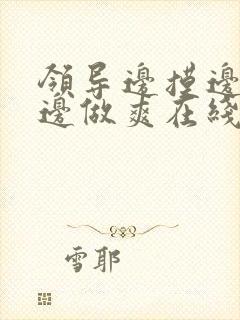 領导邊摸邊
邊做爽在綫
雪耶